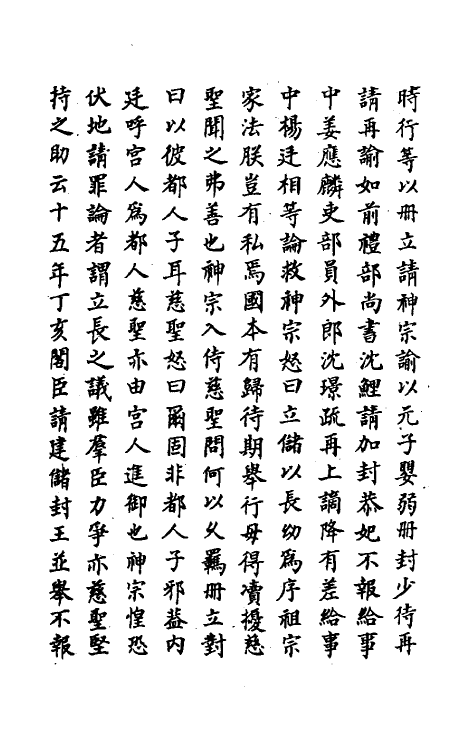 時行等以册立請神宗諭以元子嬰弱册封少待再
請再諭如前禮部尚書沈鯉請加封恭妃不報給事
中姜應麟吏部員外郎沈璟疏再上謫降有差給事
中楊廷相等論救神宗怒曰立儲以長幼爲序祖宗
家法朕豈有私焉國本有歸待期舉行毋得瀆擾慈
聖聞之弗善也神宗入侍慈聖問何以久羈册立對
曰以彼都人子耳慈聖怒曰爾固非都人子邪葢内
廷呼宫人爲都人慈聖亦由宫人進御也神宗惶恐
伏地請罪論者謂立長之議雖羣臣力爭亦慈聖堅
持之助云十五年丁亥閣臣請建儲封王並舉不報